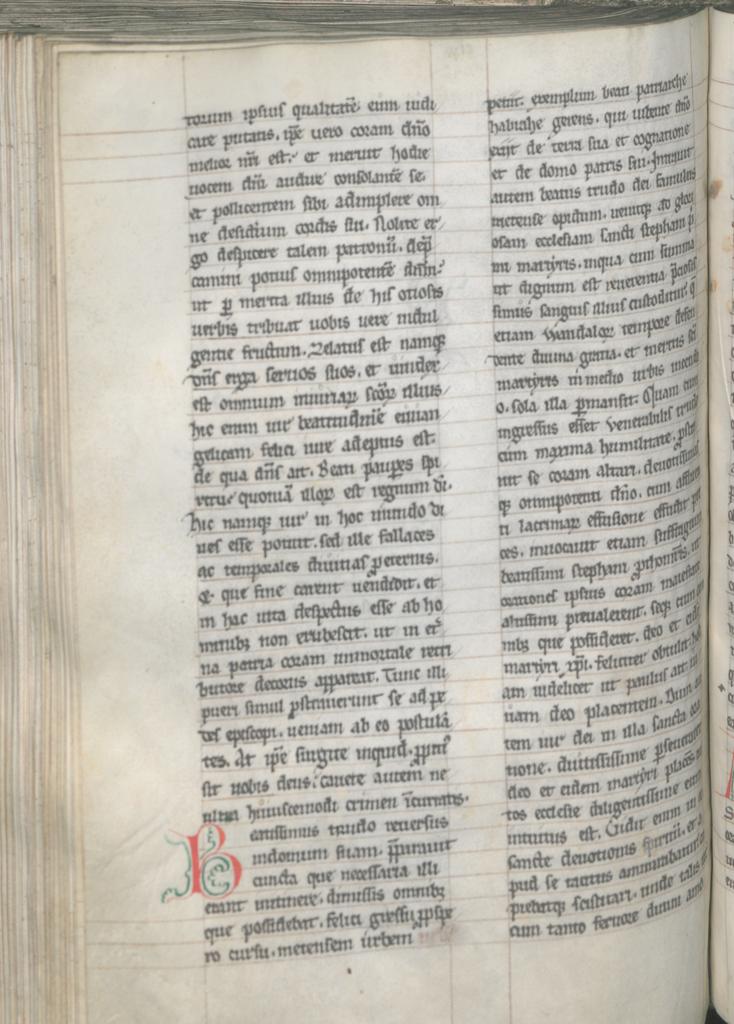 torum ipsius qualitatē eum iudi
care putatis. ip̄e vero coram dn̄o
melior nr̄i est. et meruit hodie
uocem dn̄i audire consolantē se.
et pollicentem sibi adimplere om
ne desiderium cordis sui. Nolite er
go despicere talem patronū. dep̄
camini potius omnipotentē dn̄m.
ut ꝑ merita illius de his otiosis
uerbis tribuat uobis uere indul
gentie fructum. Zelatus est namqꝫ
dn̄s erga seruos suos. et uindex
est omnium iniuriaꝝ scōꝝ illius
hic enim uir beatitudinē euuan
gelicam felici iure adeptus est.
de qua dn̄s ait. Beati pauꝑes spi
ritu quoniā illoꝝ est regnum dī.
hic namqꝫ uir in hoc mundo di
ues esse potuit. sed ille fallaces
ac temporales diuitias ꝑ eternis.
& que fine carent uendedit. et
in hac uita despectus esse ab ho
minibꝫ non erubescit. ut in et̄
na patria coram immortale retri
butore decorus appareat. Tunc illi
pueri simul ꝓstrauerunt se ad pe
des episcopi. ueniam ab eo postulā
tes. At ip̄e surgite inquid. ꝓpiti᷒
sit uobis deus. cauete autem ne
ultra huiuscemodi crimen īcurratis.
Beatissimus trudo reuersus
in domum suam. p̄parauit
cuncta que necessaria illi
erant in itinere. dimissis omnibꝫ
que possidebat. felici gressu ꝓspe
ro cursu. metensem urbem
petiit. exemplum beati patriarche
habrahe gerens. qui iubente dn̄o
exiit de terra sua et cognatione
et de domo patris sui. Intrauit
autem beatus trudo dei famulus
metense opidum. uenitqꝫ ad glori
osam ecclesiam sancti stephani p̄
mi martyris. in qua cum summa
ut dignum est reuerentia p̄ciosis
simus sanguis illius custoditus. q̄
etiam Wandaloꝝ tempore defen
dente diuina gratia. et meritis scī
martyris in medio urbis incendi
o. sola illa ꝑmansit. Quam cum
ingressus esset uenerabilis trudo
cum maxima humilitate. ꝓstra
uit se coram altari. deuotissimus
qꝫ omnipotenti dn̄o. cum affluen
ti lacrimaꝝ effusione effudit pre
ces. inuocauit etiam suffragium
beatissimi stephani ꝓthomr̄is. ut
orationes ipsius coram maiestate
altissimi preualerent. seqꝫ cum om
nibꝫ que possideret. deo et eidē
martyri xp̄i. feliciter obtulit hosti
am uidelicet ut paulus ait. ui
uam deo placentem. Dum au
tem uir dei in illa sancta ora
tione. diutississime ꝑseueraret
deo et eidem martyri placens. cus
tos ecclesie diligentissime eum
intuitus est. Vidit eum in
sancte deuotionis spiritu. et a
pud se tacitus ammirabatur.
cum tanto feruore diuini amo